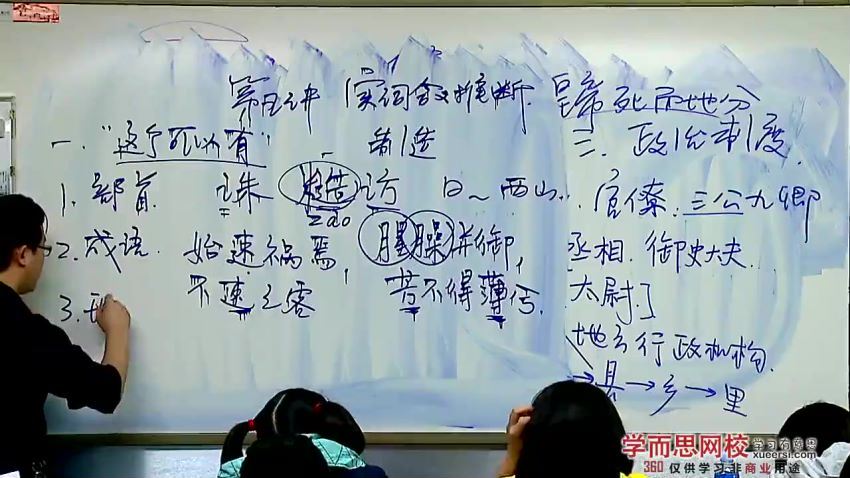 第五讲 实词含义推断 皇帝死而地分
一、"这个可以有" 制造 三、政治制度
1.部首 诛 造访 日~西山 官僚:三公九卿
zao
2.成语 始速祸焉, 腥臊并御, 丞相.御史大夫
不速之客 若不得薄 太尉]
地方行政机构
→县→乡→里
3.
学而思网校 学习有意思
xueersi.com
360 仅供学习非商业用途